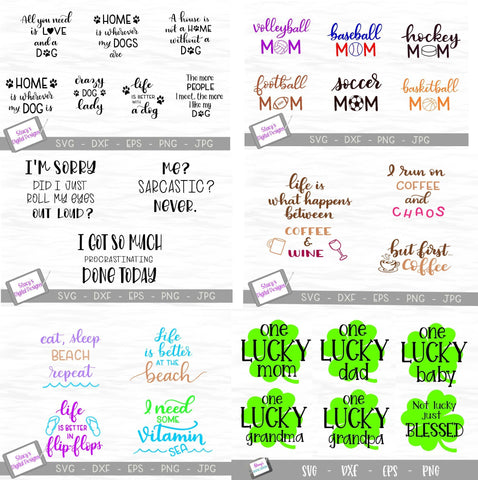 All you need
is LOVE
and a
DOG
HOME
is wherever
my DOGS
are
A house is
not a HOME
without a
DOG
HOME
is wherever
my DOG is
crazy
DOG
lady
life
IS BETTER
with
a dog
The more
PEOPLE
I meet, the more
I like my
DOG
Stacy's
Digital Designs
SVG - DXF - EPS - PNG - JPG
volleyball
MOM
baseball
MOM
hockey
MOM
football
MOM
soccer
MOM
basketball
MOM
Stacy's
Digital Designs
SVG - DXF - EPS - PNG - JPG
I'M SORRY
DID I JUST
ROLL MY EYES
OUT LOUD?
ME?
SARCASTIC?
NEVER.
I GOT SO MUCH
PROCRASTINATING
DONE TODAY
Stacy's
Digital Designs
SVG - DXF - EPS - PNG - JPG
life is
what happens
between
COFFEE
&
WINE
I run on
COFFEE
and
CHAOS
but first
Coffee
Stacy's
Digital Designs
SVG - DXF - EPS - PNG - JPG
eat, sleep
BEACH
repeat
Life
is better
AT the
beach
life
IS BETTER IN
flip flops
I need
SOME
Vitamin
SEA
Stacy's
Digital Designs
SVG - DXF - EPS - PNG - JPG
one
LUCKY
mom
one
LUCKY
dad
one
LUCKY
baby
one
LUCKY
grandma
one
LUCKY
grandpa
Not lucky
just
BLESSED
SVG - DXF - EPS - PNG